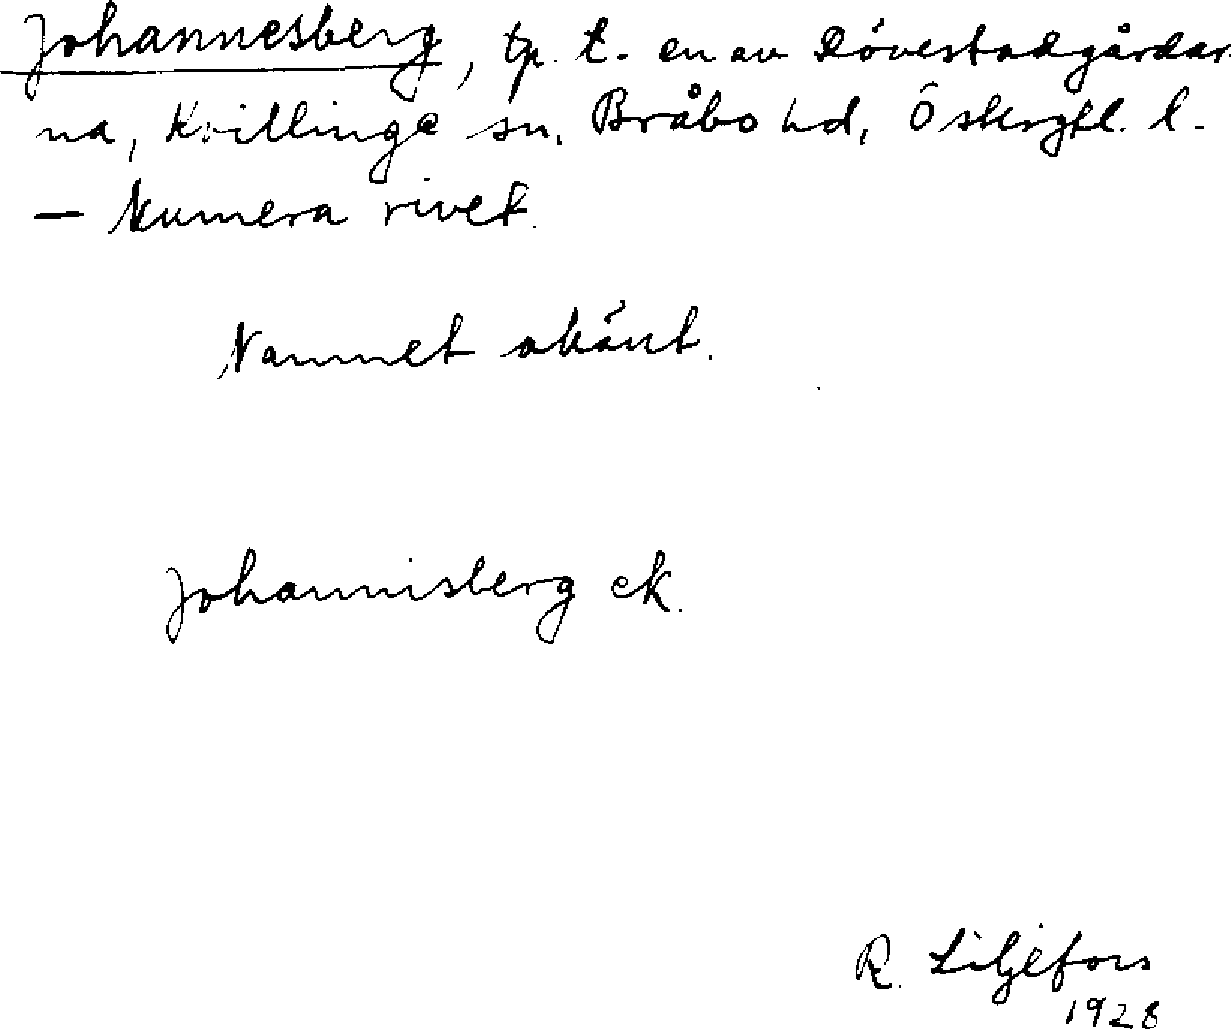 Johannesberg, tp. t. en av Dövestadgårdar
na, Kvillinge sn, Bråbo hd, Östergtl. l.
— Numera rivet.
Namnet okänt.
Johannisberg ek.
R. Liljefors
1928